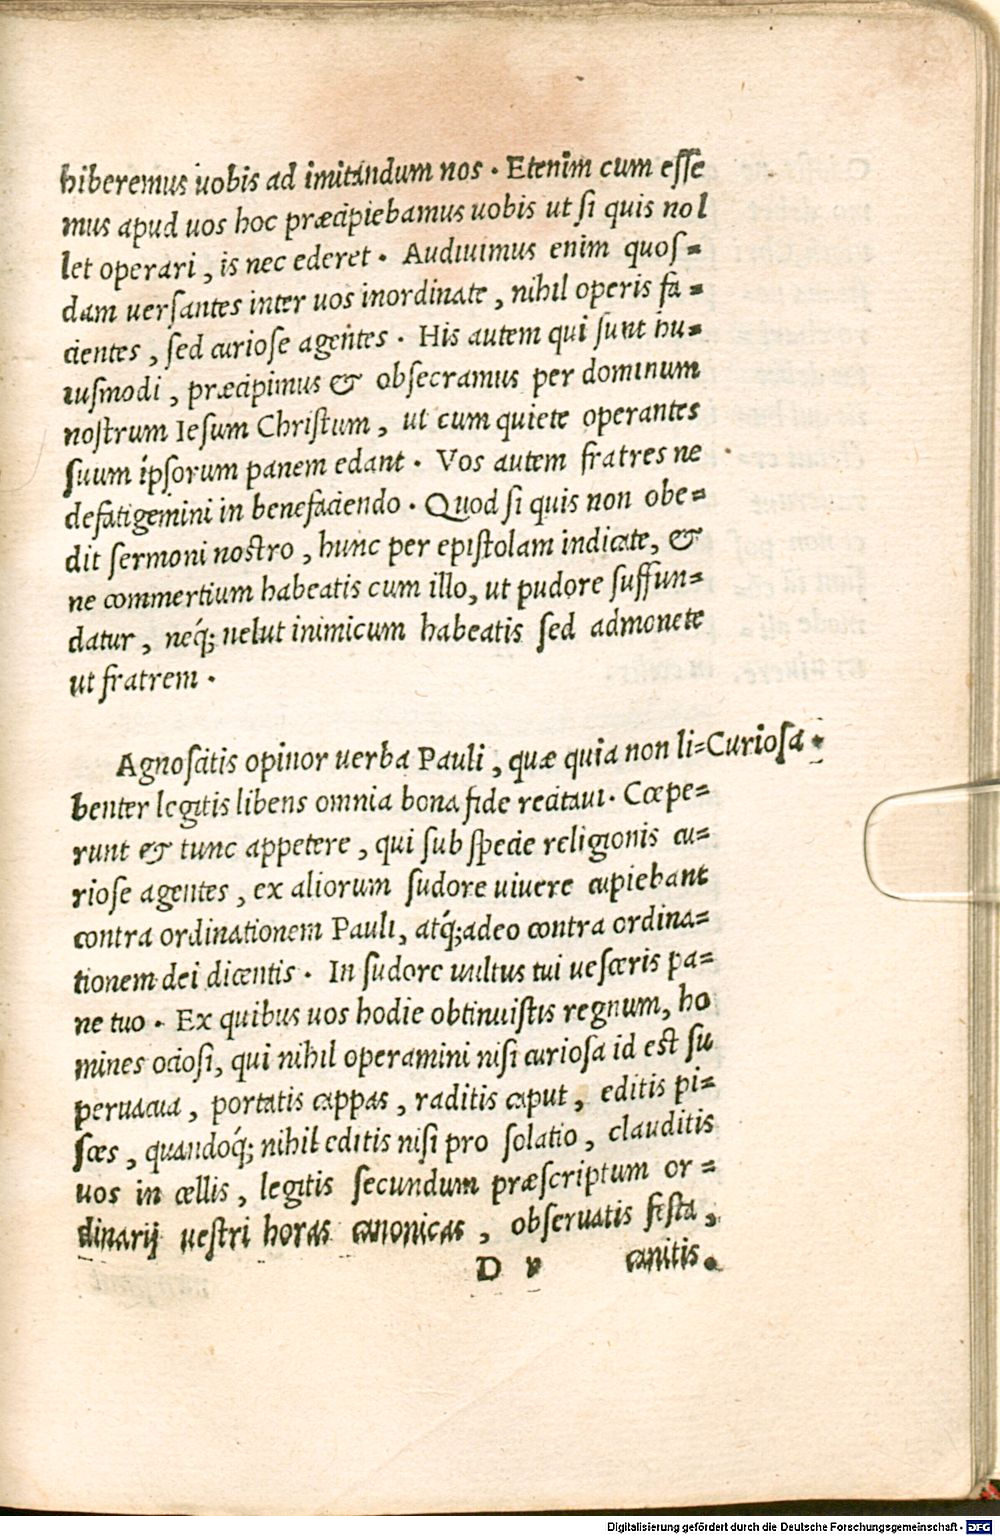 hiberemus uobis ad imitandum nos . Etenim cum esse
mus apud uos hoc præcipiebamus uobis ut si quis nol
let operari , is nec ederet . Audiuimus enim quos=
dam uersantes inter uos inordinate , nihil operis fa=
cientes , sed curiose agentes . His autem qui sunt hu=
iusmodi , præcipimus & obsecramus per dominum
nostrum Iesum Christum , ut cum quiete operantes
suum ipsorum panem edant . Vos autem fratres ne
defatigemini in benefaciendo . Quod si quis non obe=
dit sermoni nostro , hunc per epistolam indicate, &
ne commertium habeatis cum illo, ut pudore suffun=
datur , neq́; uelut inimicum habeatis sed admonete
ut fratrem .
Agnoscitis opinor uerba Pauli , quæ quia non li=
Curiosa .
benter legitis libens omnia bona fide recitaui . Cœpe=
runt & tunc appetere , qui sub specie religionis cu=
riose agentes , ex aliorum sudore uiuere cupiebant
contra ordinationem Pauli, atq́; adeo contra ordina=
tionem dei dicentis . In sudore uultus tui uesceris pa=
ne tuo . Ex quibus uos hodie obtinuistis regnum, ho
mines ociosi, qui nihil operamini nisi curiosa id est su
peruacua , portatis cappas , raditis caput , editis pi=
sces , quandoq́; nihil editis nisi pro solatio , clauditis
uos in cellis , legitis secundum præscriptum or=
dinarij uestri horas canonicas , obseruatis festa ,
D v canitis.
Digitalisierung gefördert durch die Deutsche Forschungsgemeinschaft - DFG